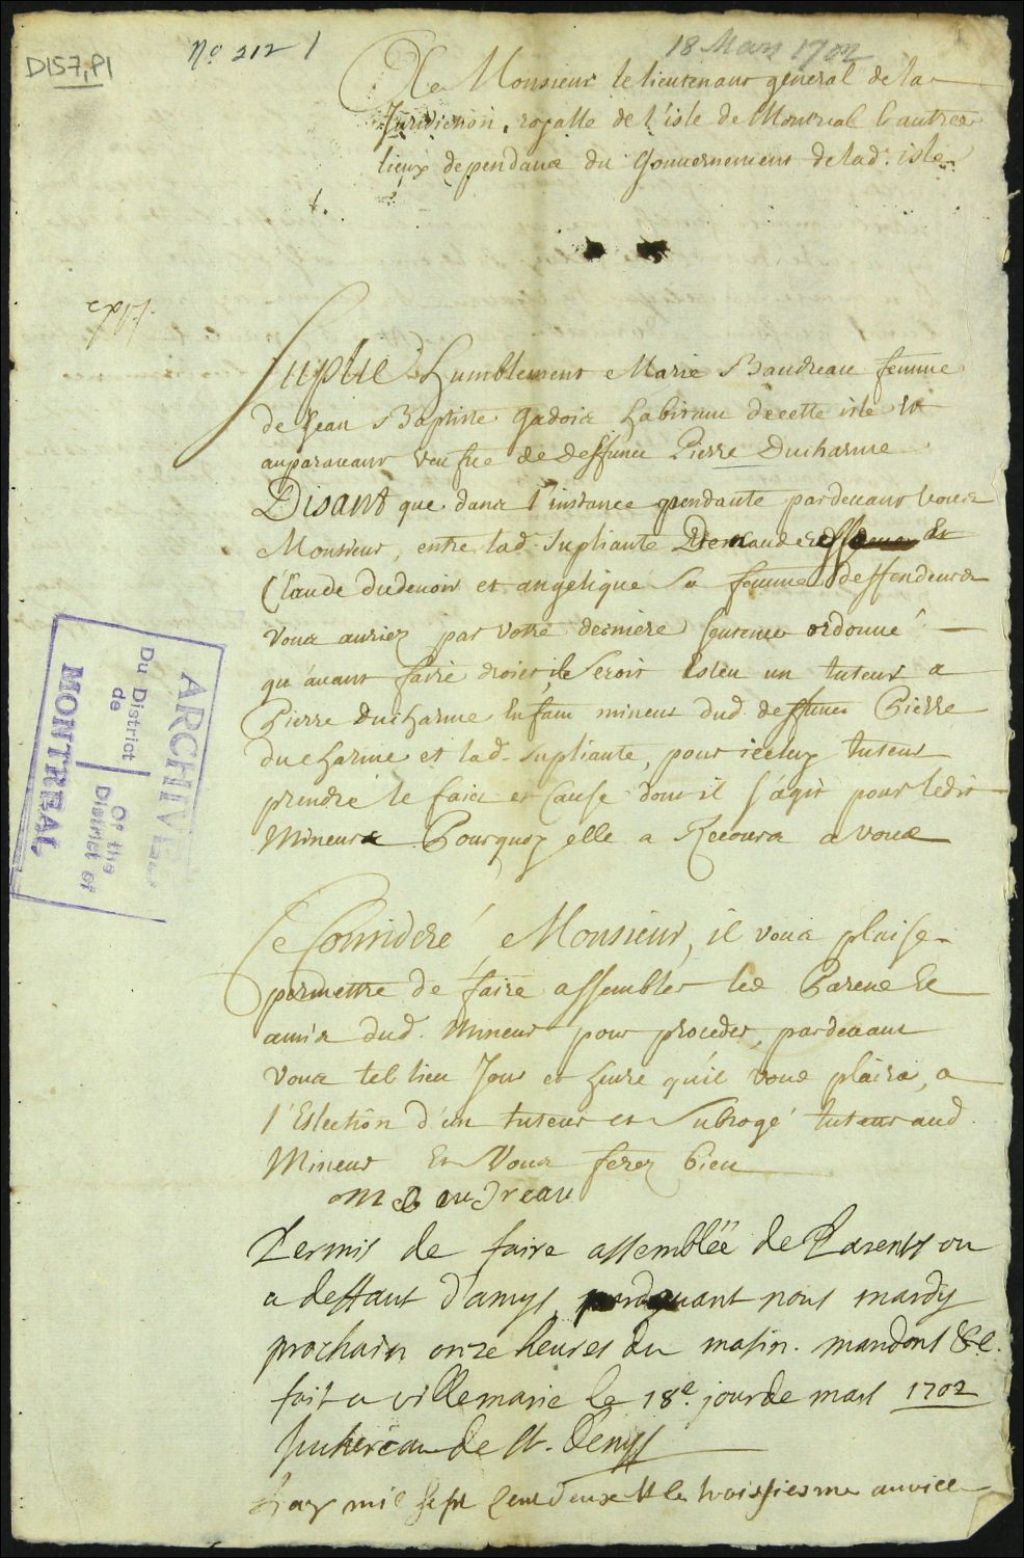 D157,P1
No 212 1
18 Mars 1702
A Monsieur le lieutenant general de la
Juridiction royalle de l'isle de Montreal & autres
lieux dependans du Gouvernement de lad. isle
exp.
Suplie humblement Marie Baudreau femme
de Jean Baptiste Gadois habitant de cette isle et
auparavant veufve de deffunct Pierre Ducharme
Disant que dans l'instance pendante pardevant vous
Monsieur, entre lad. supliante Demanderesse Et
Claude Dudevoir et angelique sa femme deffendeurs
Vous auriez par votre derniere sentence ordonné
qu'avant faire droict, il seroit esleu un tuteur a
Pierre Ducharme Enfant mineur dud. deffunct Pierre
ducharme et lad. supliante, pour iceluy tuteur
prendre le faict et cause dont il s'agit pour ledit
Mineur Pourquoy elle a Recours a vous
Ce Consideré Monsieur, il vous plaise
permettre de faire assembler les Parens Et
amis dud. Mineur pour proceder, pardevant
Vous tel lieu Jour et heure qu'il vous plaira, a
l'Eslection d'un tuteur et subrogé tuteur aud.
Mineur Et Vous ferez bien
m Baudreau
Permis de faire assemblée de Parents ou
a deffaut d'amys, pardevant nous mardy
prochain onze heures du matin. mandons &c.
fait a villemarie le 18e. jour de mars 1702
Juchereau de St. Denys
L'an mil sept cent deux & le troissiesme avril
ARCHIVES
Du District
de
Of the
District of
MONTREAL